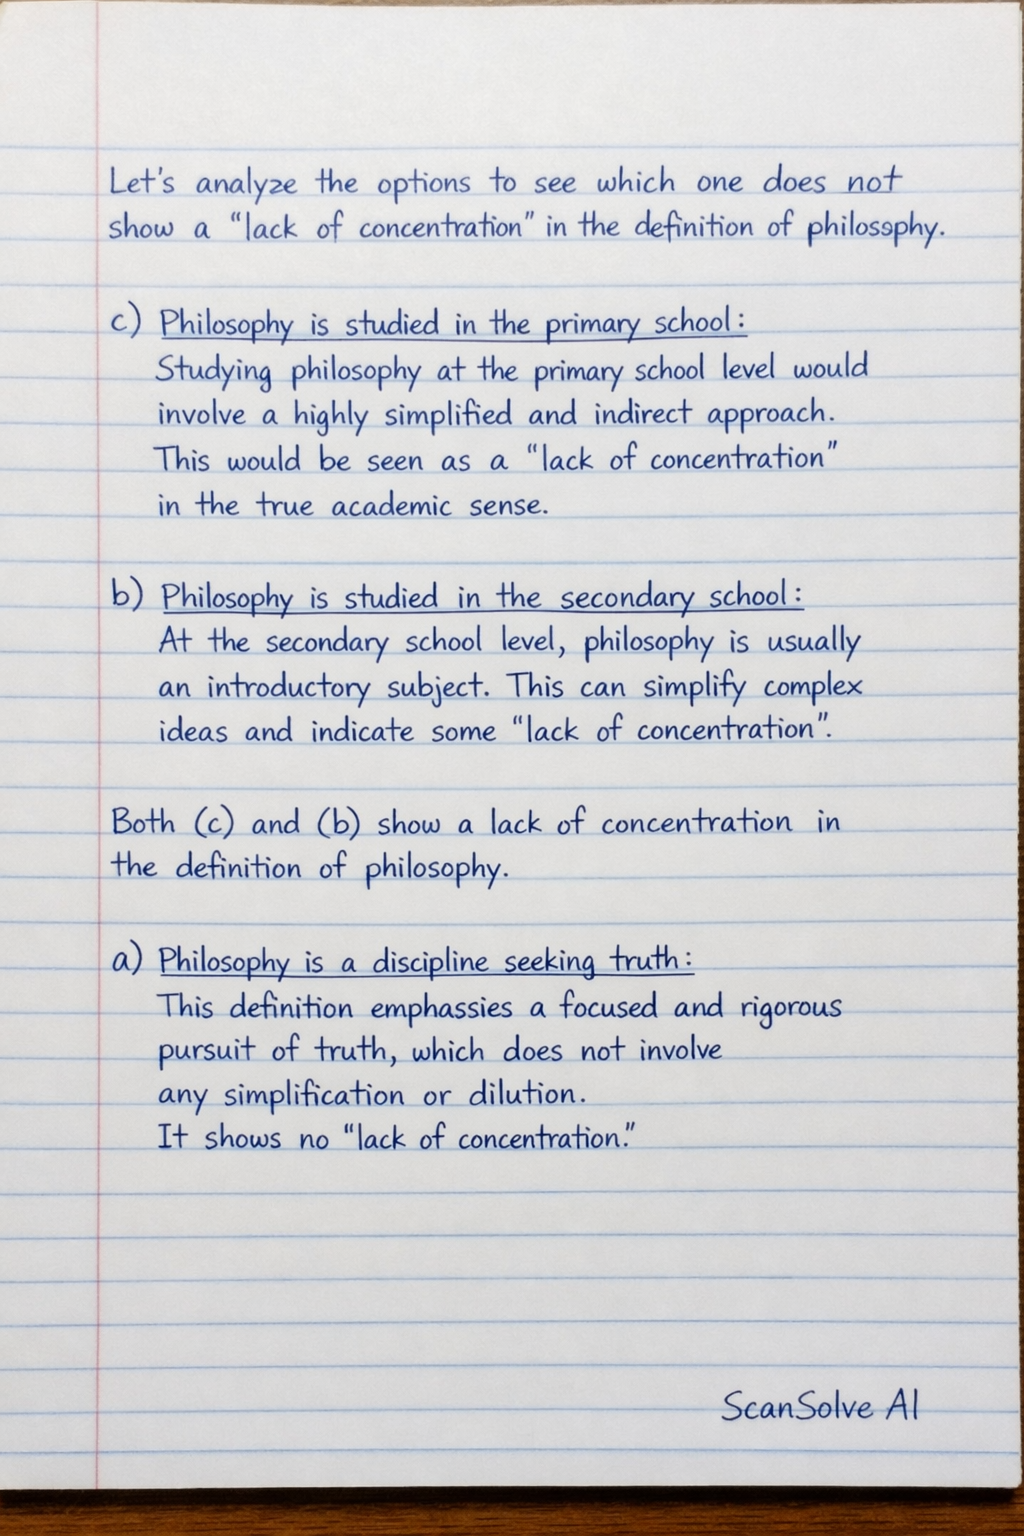 Let's analyze the options to see which one does not
show a “lack of concentration” in the definition of philosophy.
c) Philosophy is studied in the primary school:
Studying philosophy at the primary school level would
involve a highly simplified and indirect approach.
This would be seen as a “lack of concentration”
in the true academic sense.
b) Philosophy is studied in the secondary school:
At the secondary school level, philosophy is usually
an introductory subject. This can simplify complex
ideas and indicate some “lack of concentration”.
Both (c) and (b) show a lack of concentration in
the definition of philosophy.
a) Philosophy is a discipline seeking truth:
This definition emphassies a focused and rigorous
pursuit of truth, which does not involve
any simplification or dilution.
It shows no “lack of concentration.”
ScanSolve AI